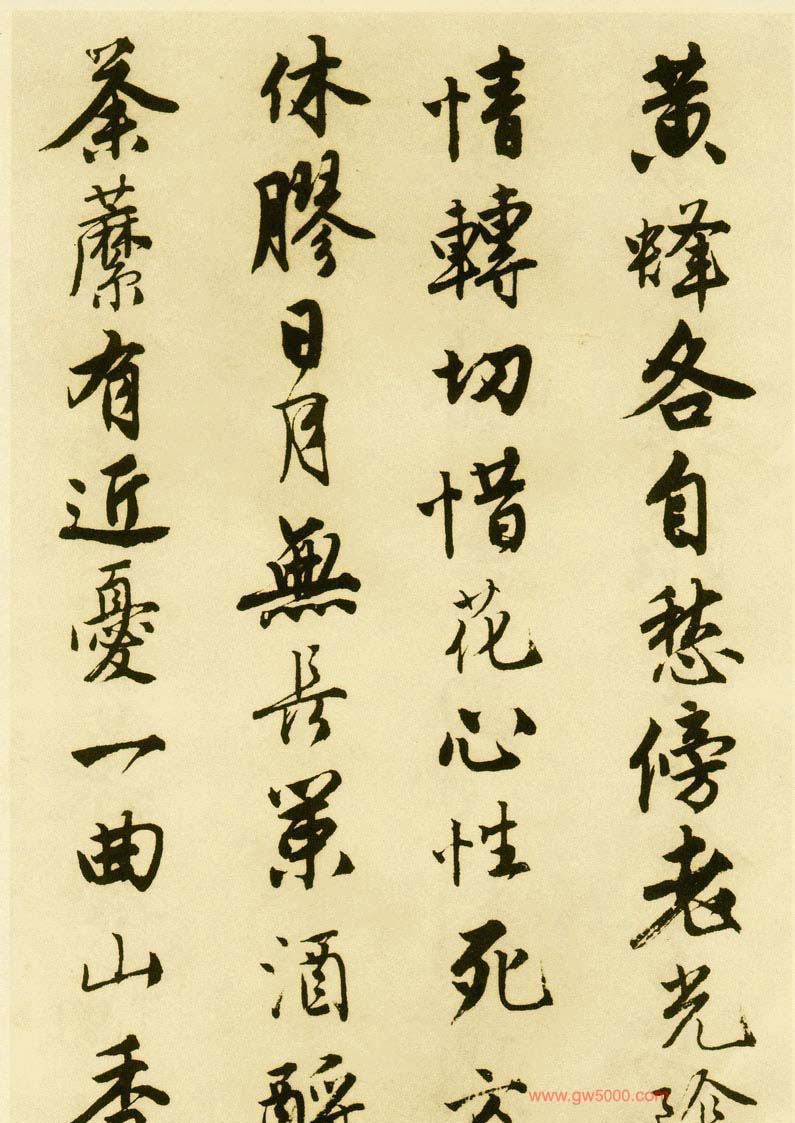 黄蜂各自愁傍老光陰
情轉切惜花心性死方
休膠日月無長策酒酹
荼䕷有近憂一曲山香
www.gw5000.com